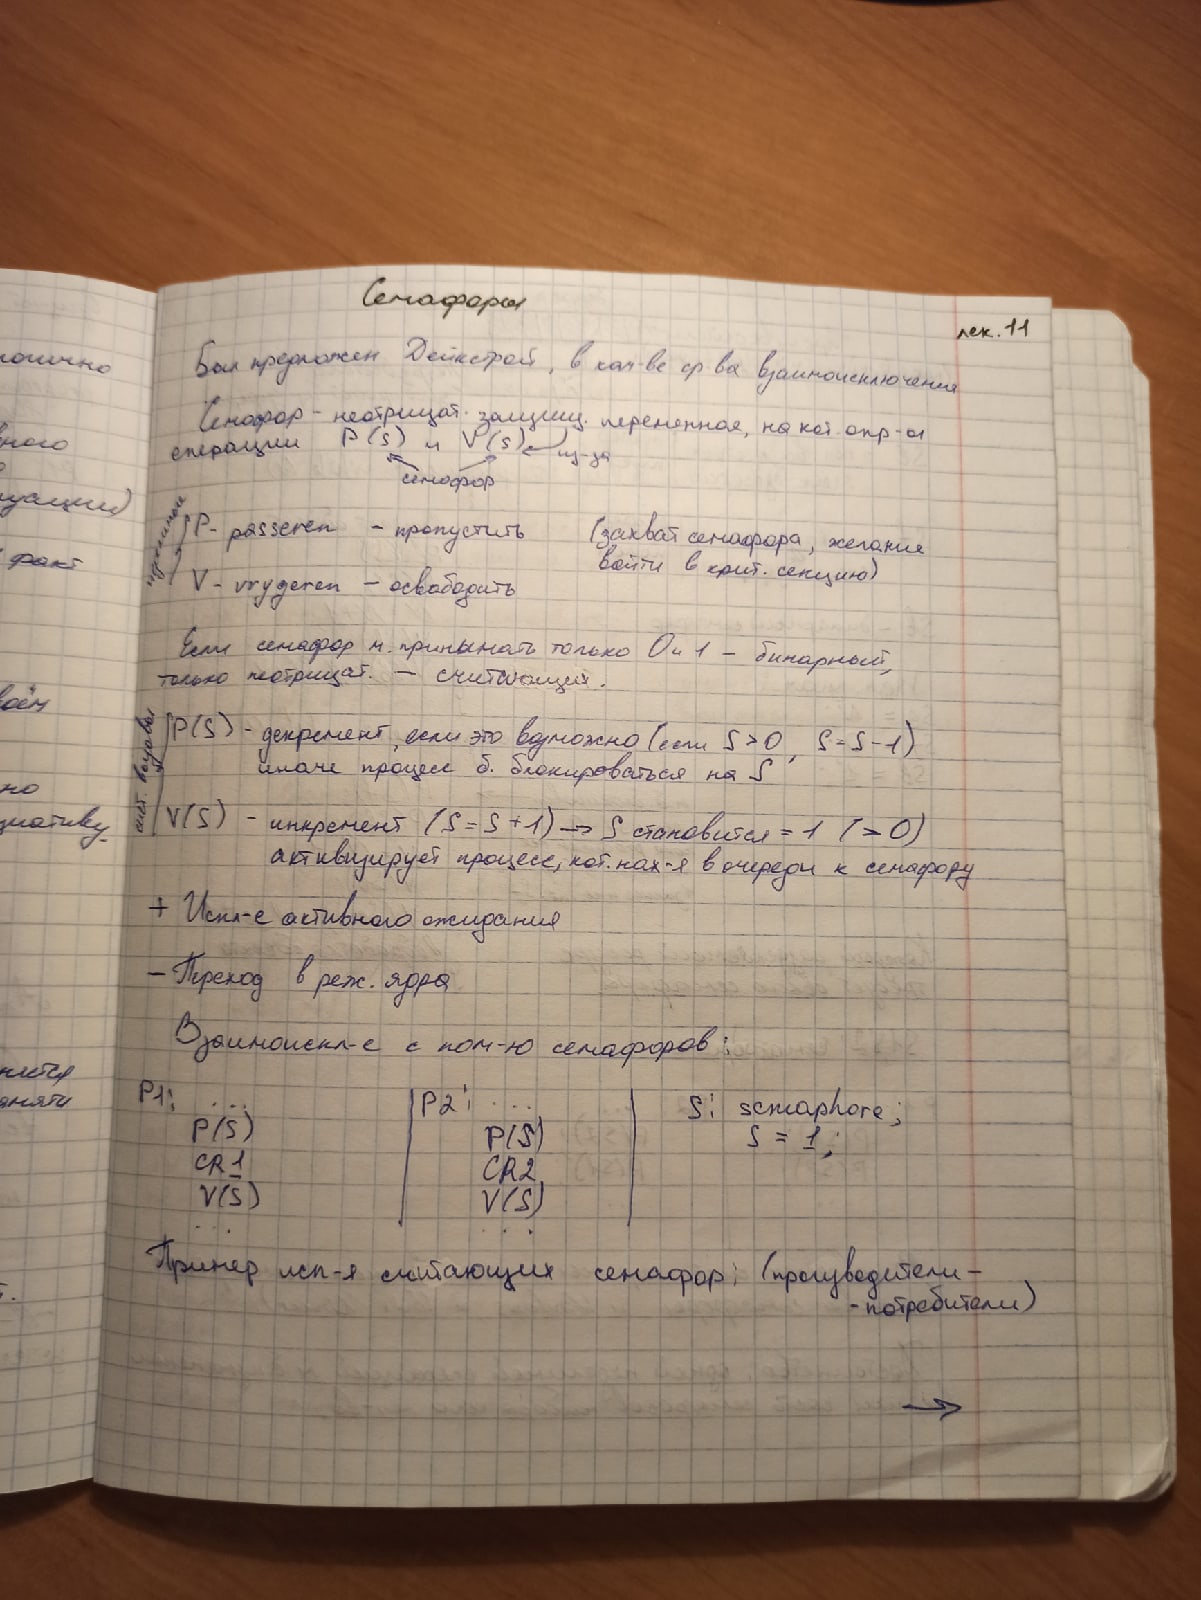 Семафоры
лек. 11
Был предложен Дейкстрой, в кач-ве ср-ва взаимоисключения
Семафор - неотрицат. защищ. переменная, на кот. опр-ы
операции P(S) и V(S)
из-за
семафор
P - passeren - пропустить (захват семафора, желание
войти в крит. секцию)
V - vrygeren - освободить
Если семафор м. принимать только 0 и 1 - бинарный,
только неотрицат. - считающий.
сист. вызовы
P(S) - декремент, если это возможно (если S>0, S=S-1)
иначе процесс б. блокироваться на S
V(S) - инкремент (S=S+1) → S становится = 1 (>0)
активизирует процесс, кот. нах-я в очереди к семафору
+ Искл-е активного ожидания
- Переход в реж. ядра
Взаимоискл-е с пом-ю семафоров:
P1: ... P2: ... S: semaphore;
P(S) P(S) S = 1;
CR1 CR2
V(S) V(S)
... ...
Пример исп-я считающих семафор: (производители-
-потребители)
→
логично
вного
факт
воём
но
циативу